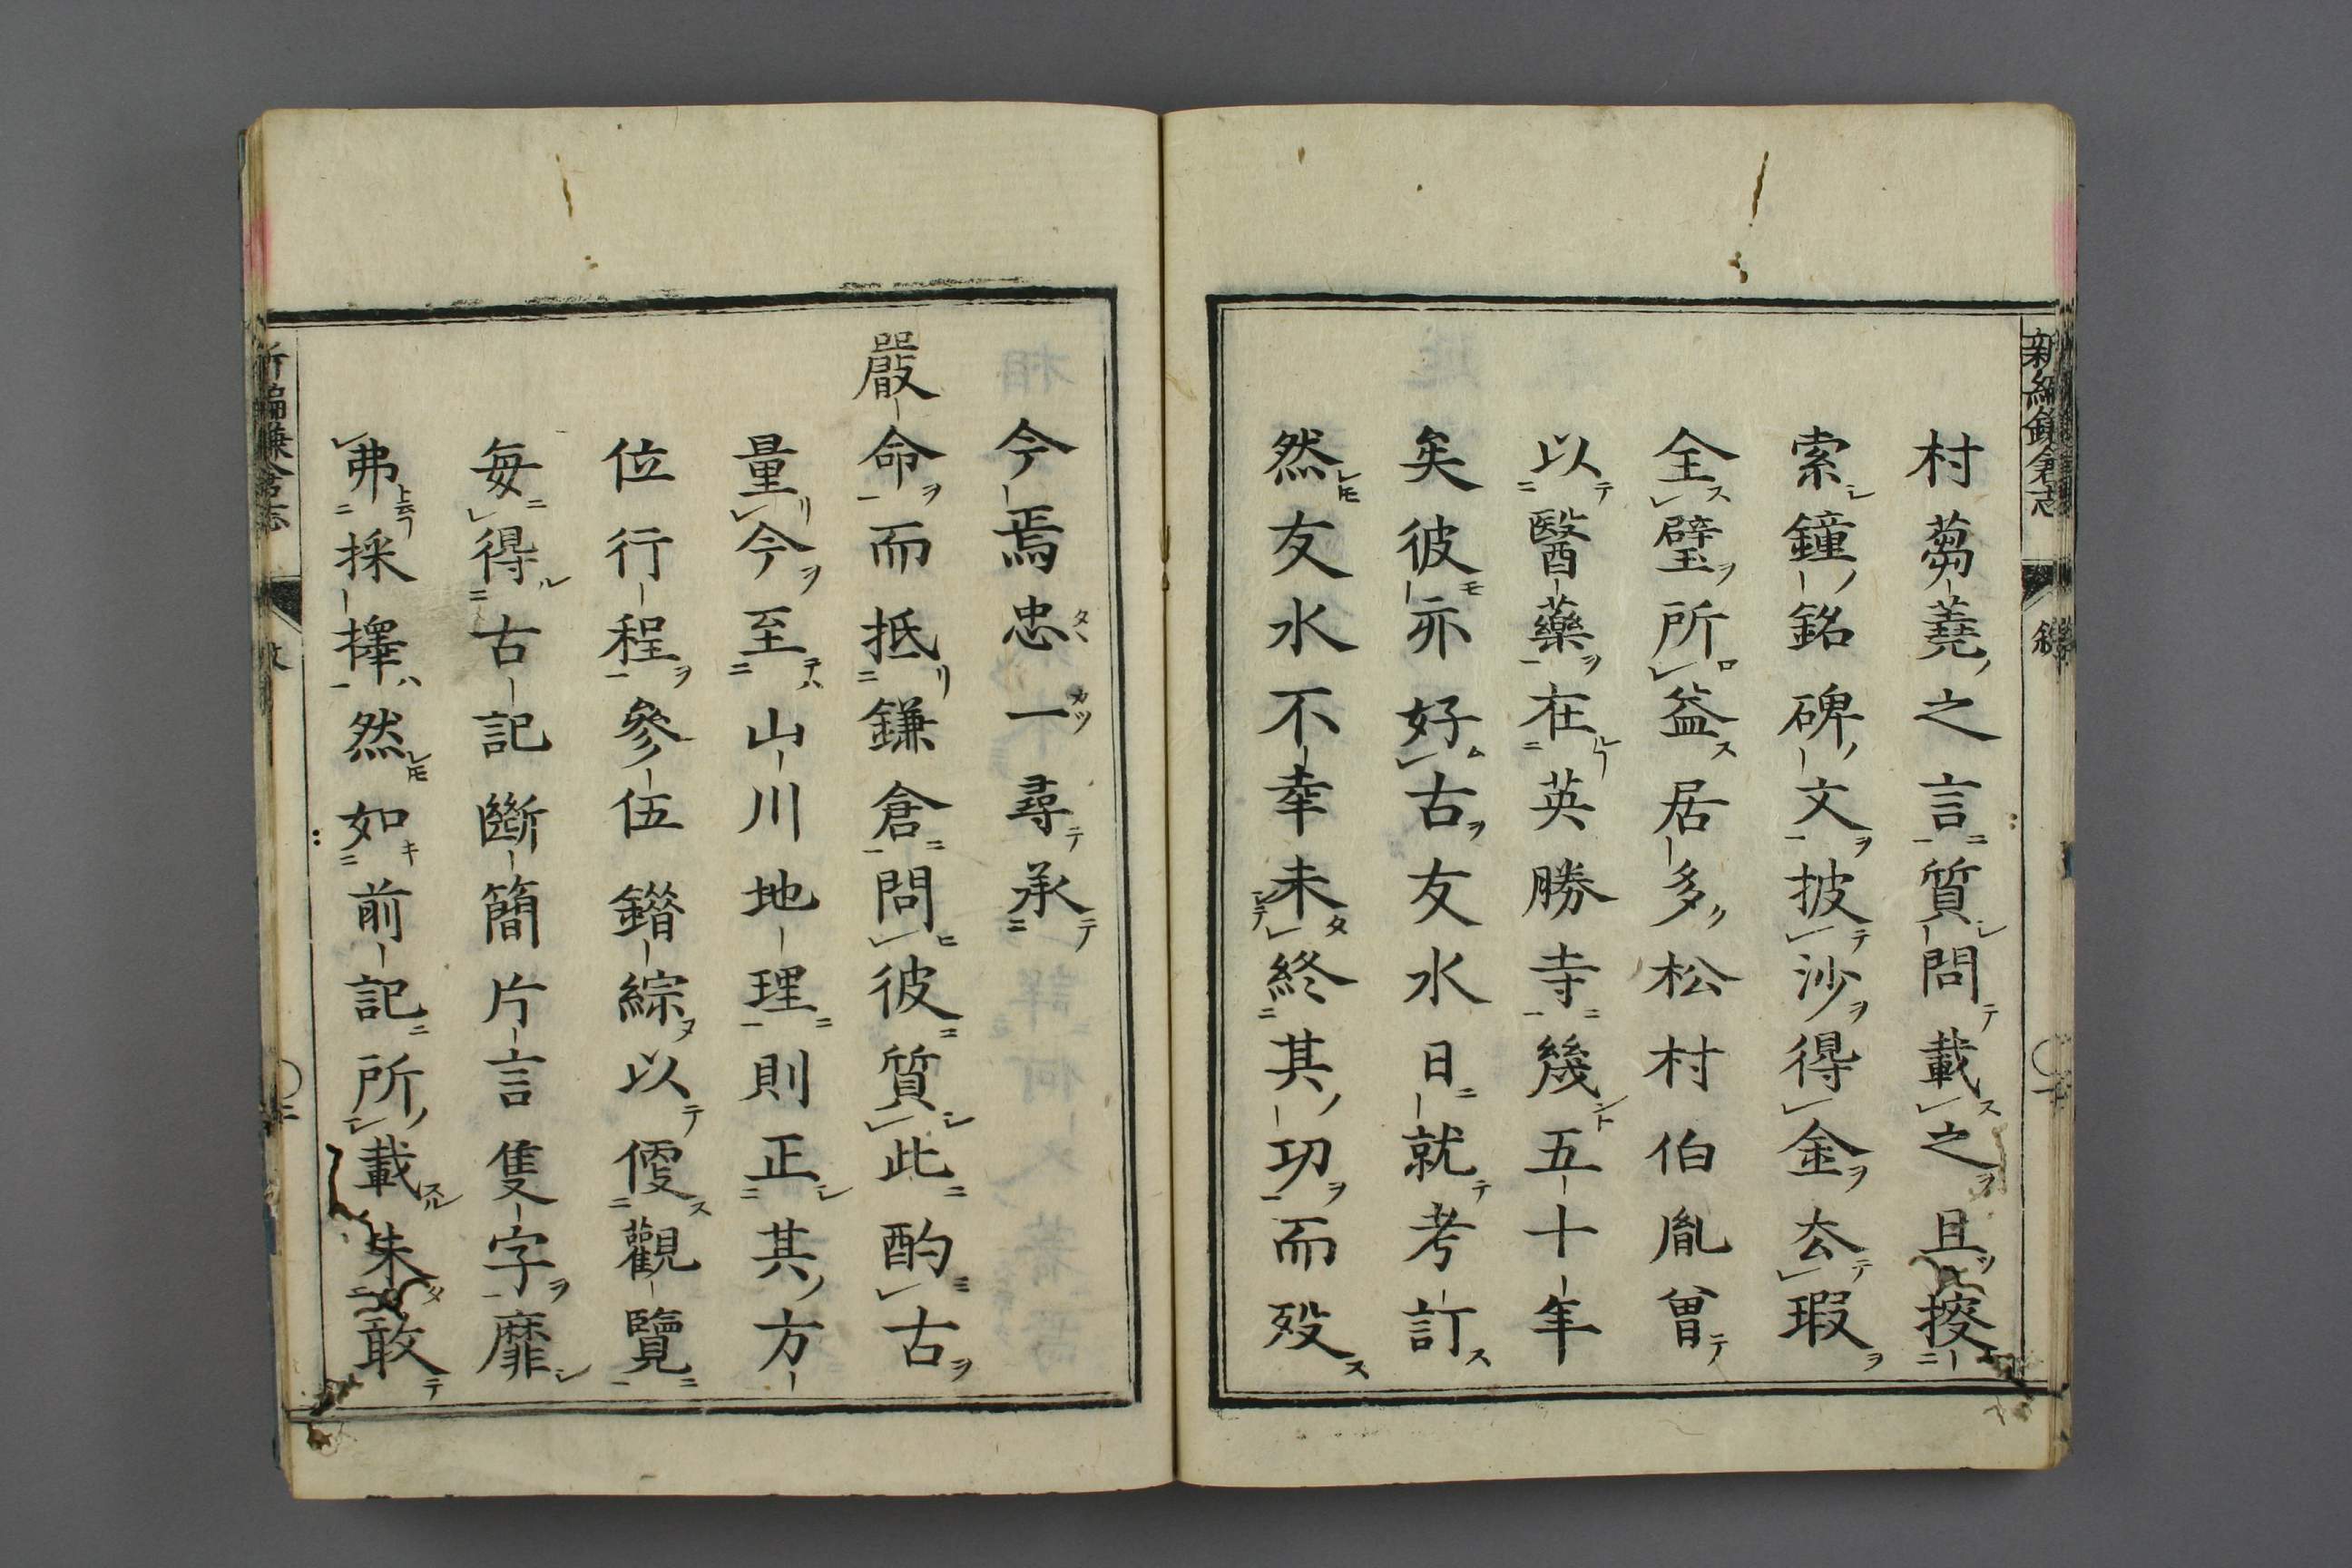 新編鎌倉志
敘
村蒭蕘之言質問載之且摉
索鐘銘碑文披沙得金厺瑕
全璧所益居多松村伯胤曾
以醫藥在英勝寺幾五十年
矣彼亦好古友水日就考訂
然友水不幸未終其功而歿
今焉忠一尋承
嚴命而抵鎌倉問彼質此酌古
量今至山川地理則正其方
位行程參伍錯綜以便觀覽
每得古記斷簡片言隻字靡
弗採擇然如前記所載未敢
新編鎌倉志